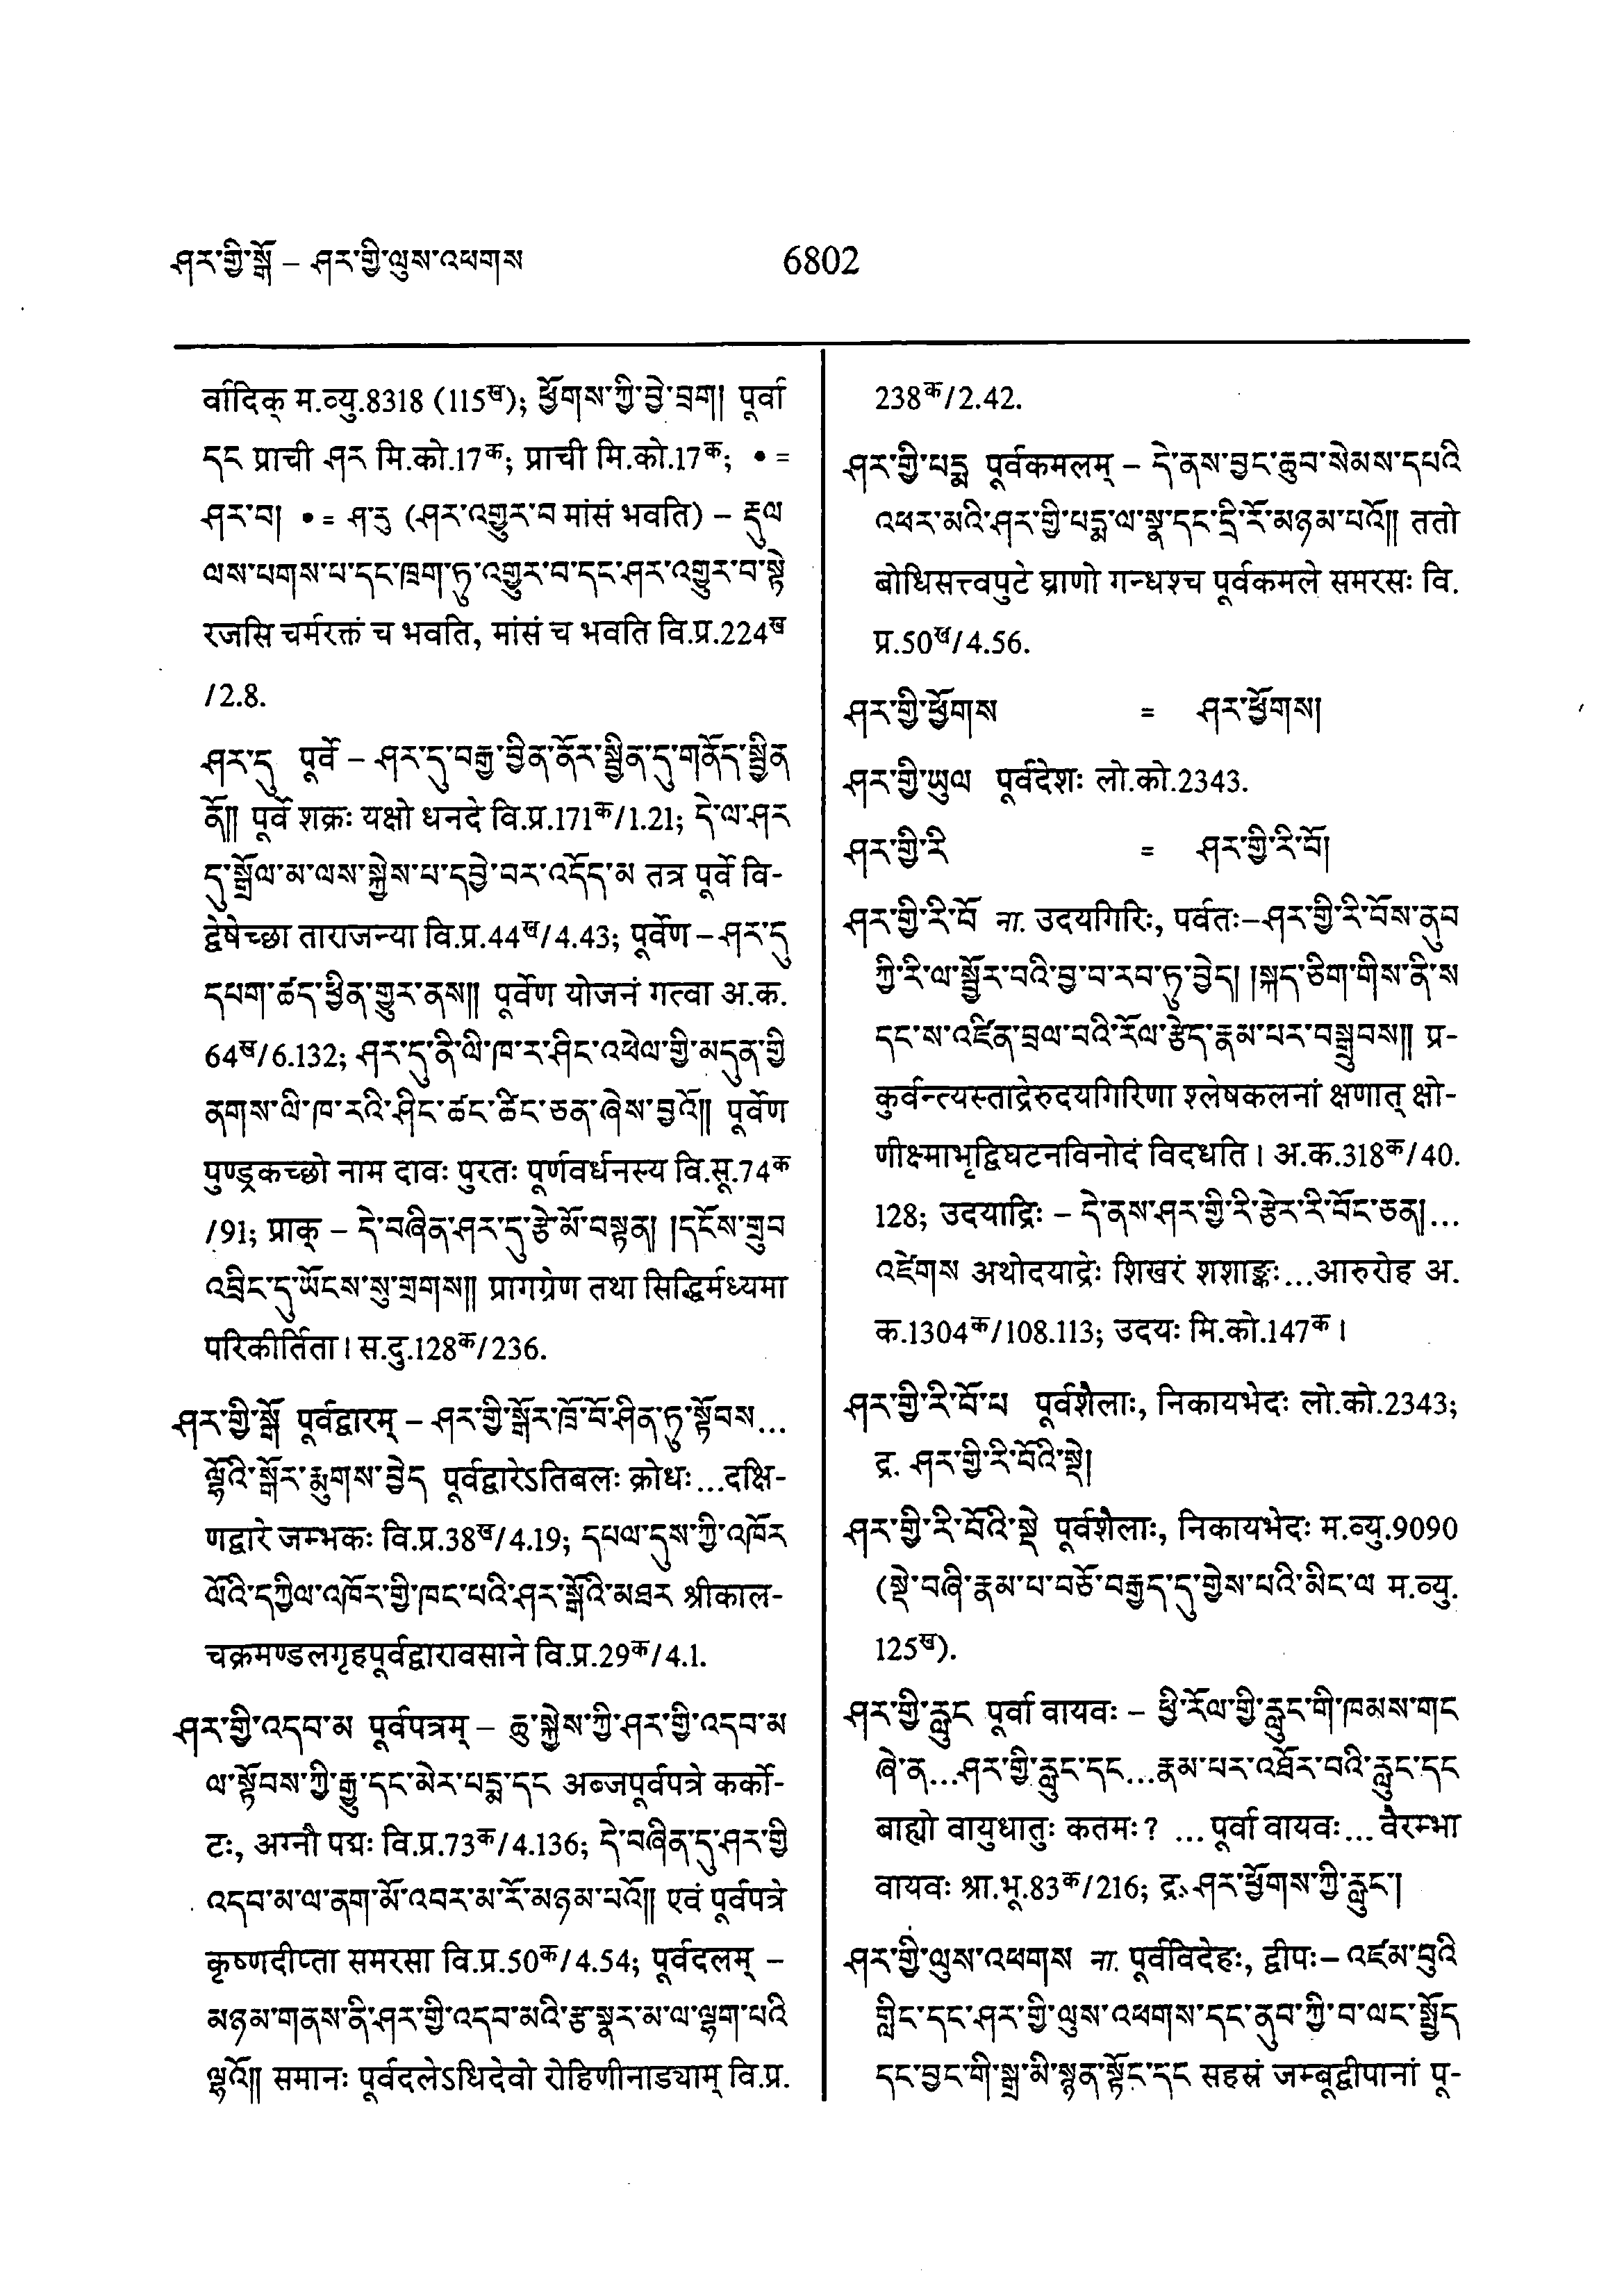 ཤར་གྱི་སྒོ – ཤར་གྱི་ལུས་འཕགས
6802
र्वादिक् म.व्यु.8318 (115ख); ཕྱོགས་ཀྱི་བྱེ་བྲག། पूर्वा
དང प्राची ཤར मि.को.17क; प्राची मि.को.17क; • =
ཤར་བ། • = ཤ་རུ (ཤར་འགྱུར་བ मांसं भवति) – རྡུལ
ལས་པགས་པ་དང་ཁྲག་ཏུ་འགྱུར་བ་དང་ཤར་འགྱུར་བ་སྟེ
रजसि चर्मरक्तं च भवति, मांसं च भवति वि.प्र.224ख
/2.8.
ཤར་དུ पूर्वे – ཤར་དུ་བརྒྱ་བྱིན་ནོར་སྦྱིན་དུ་གནོད་སྦྱིན
ནོ།། पूर्वे शक्रः यक्षो धनदे वि.प्र.171क/1.21; དེ་ལ་ཤར
དུ་སྒྲོལ་མ་ལས་སྐྱེས་པ་དབྱེ་བར་འདོད་མ तत्र पूर्वे वि-
द्वेषेच्छा ताराजन्या वि.प्र.44ख/4.43; पूर्वेण – ཤར་དུ
དཔག་ཚད་ཕྱིན་གྱུར་ནས།། पूर्वेण योजनं गत्वा अ.क.
64ख/6.132; ཤར་དུ་ནི་ལི་ཁ་ར་ཤིང་འཕེལ་གྱི་མདུན་གྱི
ནགས་ལི་ཁ་རའི་ཤིང་ཚང་ཚིང་ཅན་ཞེས་བྱའོ།། पूर्वेण
पुण्ड्रकच्छो नाम दावः पुरतः पूर्णवर्धनस्य वि.सू.74क
/91; प्राक् – དེ་བཞིན་ཤར་དུ་རྩེ་མོ་བསྟན། །དངོས་གྲུབ
འབྲིང་དུ་ཡོངས་སུ་གྲགས།། प्रागग्रेण तथा सिद्धिर्मध्यमा
परिकीर्तिता। स.दु.128क/236.
ཤར་གྱི་སྒོ पूर्वद्वारम् – ཤར་གྱི་སྒོར་ཁྲོ་བོ་ཤིན་ཏུ་སྟོབས...
ལྷོའི་སྒོར་རྨུགས་བྱེད पूर्वद्वारेऽतिबलः क्रोधः...दक्षि-
णद्वारे जम्भकः वि.प्र.38ख/4.19; དཔལ་དུས་ཀྱི་འཁོར
ལོའི་དཀྱིལ་འཁོར་གྱི་ཁང་པའི་ཤར་སྒོའི་མཐར श्रीकाल-
चक्रमण्डलगृहपूर्वद्वारावसाने वि.प्र.29क/4.1.
ཤར་གྱི་འདབ་མ पूर्वपत्रम् – ཆུ་སྐྱེས་ཀྱི་ཤར་གྱི་འདབ་མ
ལ་སྟོབས་ཀྱི་རྒྱུ་དང་མེར་པདྨ་དང अब्जपूर्वपत्रे कर्को-
टः, अग्नौ पद्मः वि.प्र.73क/4.136; དེ་བཞིན་དུ་ཤར་གྱི
འདབ་མ་ལ་ནག་མོ་འབར་མ་རོ་མཉམ་པའོ།། एवं पूर्वपत्रे
कृष्णदीप्ता समरसा वि.प्र.50क/4.54; पूर्वदलम् –
མཉམ་གནས་ནི་ཤར་གྱི་འདབ་མའི་རྩ་སྣར་མ་ལ་ལྷག་པའི
ལྷའོ།། समानः पूर्वदलेऽधिदेवो रोहिणीनाड्याम् वि.प्र.
238क/2.42.
ཤར་གྱི་པདྨ पूर्वकमलम् – དེ་ནས་བྱང་ཆུབ་སེམས་དཔའི
འཕར་མའི་ཤར་གྱི་པདྨ་ལ་སྣ་དང་དྲི་རོ་མཉམ་པའོ།། ततो
बोधिसत्त्वपुटे घ्राणो गन्धश्च पूर्वकमले समरसः वि.
प्र.50ख/4.56.
ཤར་གྱི་ཕྱོགས = ཤར་ཕྱོགས།
ཤར་གྱི་ཡུལ पूर्वदेशः लो.को.2343.
ཤར་གྱི་རི = ཤར་གྱི་རི་བོ།
ཤར་གྱི་རི་བོ ना. उदयगिरिः, पर्वतः–ཤར་གྱི་རི་བོས་ནུབ
ཀྱི་རི་ལ་སྦྱོར་བའི་བྱ་བ་རབ་ཏུ་བྱེད། །སྐད་ཅིག་གིས་ནི་ས
དང་ས་འཛིན་བྲལ་བའི་རོལ་རྩེད་རྣམ་པར་བསྒྲུབས།། प्र-
कुर्वन्त्यस्ताद्रेरुदयगिरिणा श्लेषकलनां क्षणात् क्षो-
णीक्ष्माभृद्विघटनविनोदं विदधति। अ.क.318क/40.
128; उदयाद्रिः – དེ་ནས་ཤར་གྱི་རི་རྩེར་རི་བོང་ཅན།...
འཛེགས अथोदयाद्रेः शिखरं शशाङ्कः...आरुरोह अ.
क.1304क/108.113; उदयः मि.को.147क।
ཤར་གྱི་རི་བོ་པ पूर्वशैलाः, निकायभेदः लो.को.2343;
द्र. ཤར་གྱི་རི་བོའི་སྡེ།
ཤར་གྱི་རི་བོའི་སྡེ पूर्वशैलाः, निकायभेदः म.व्यु.9090
(སྡེ་བཞི་རྣམ་པ་བཅོ་བརྒྱད་དུ་གྱེས་པའི་མིང་ལ म.व्यु.
125ख).
ཤར་གྱི་རླུང पूर्वा वायवः – ཕྱི་རོལ་གྱི་རླུང་གི་ཁམས་གང
ཞེ་ན...ཤར་གྱི་རླུང་དང...རྣམ་པར་འཐོར་བའི་རླུང་དང
बाह्यो वायुधातुः कतमः? ...पूर्वा वायवः...वैरम्भा
वायवः श्रा.भू.83क/216; द्र. ཤར་ཕྱོགས་ཀྱི་རླུང་།
ཤར་གྱི་ལུས་འཕགས ना. पूर्वविदेहः, द्वीपः– འཛམ་བུའི
གླིང་དང་ཤར་གྱི་ལུས་འཕགས་དང་ནུབ་ཀྱི་བ་ལང་སྤྱོད
དང་བྱང་གི་སྒྲ་མི་སྙན་སྟོང་དང सहस्रं जम्बूद्वीपानां पू-